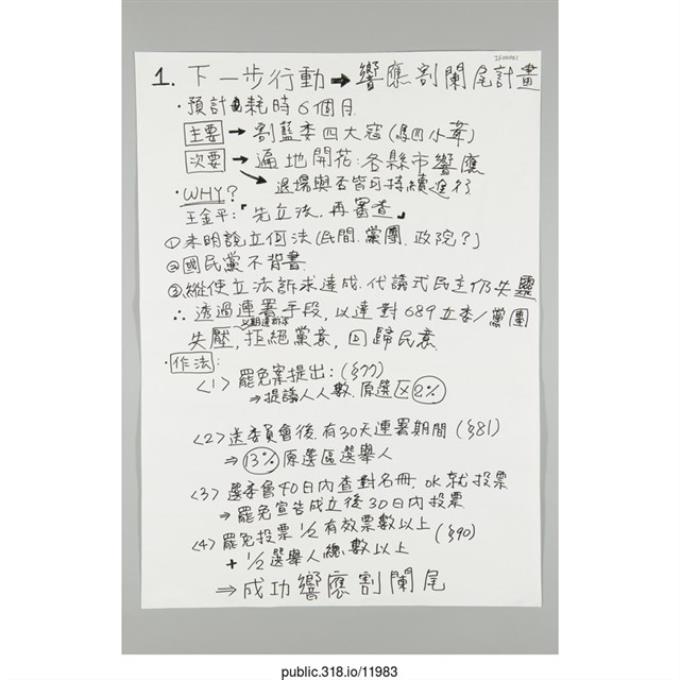 1. 下一步行動 → 響應割闌尾計畫
・預計耗時6個月
主要 → 割藍委四大寇(馬四小輩)
次要 → 遍地開花:各縣市響應
→ 退場與否皆可持續進行
・WHY?
王金平:「先立法,再審查」
①未明說立何法(民間.黨團.政院?)
②國民黨不背書
③縱使立法訴求達成.代議式民主仍失靈
∴ 透過連署手段,以達對689立委/黨團
失壓,拒絕黨意,回歸民意
・作法:
<1> 罷免案提出:(§77)
⇒提議人人數.原選区2%
<2>送委員會後.有30天連署期間(§81)
⇒ 13% 原選區選舉人
<3> 選委會40日內查對名冊,ok就投票
⇒罷免宣告成立後30日內投票
<4> 罷免投票 1/2有效票數以上 (§90)
+ 1/2選舉人總數以上
⇒成功響應割闌尾
public.318.io/11983